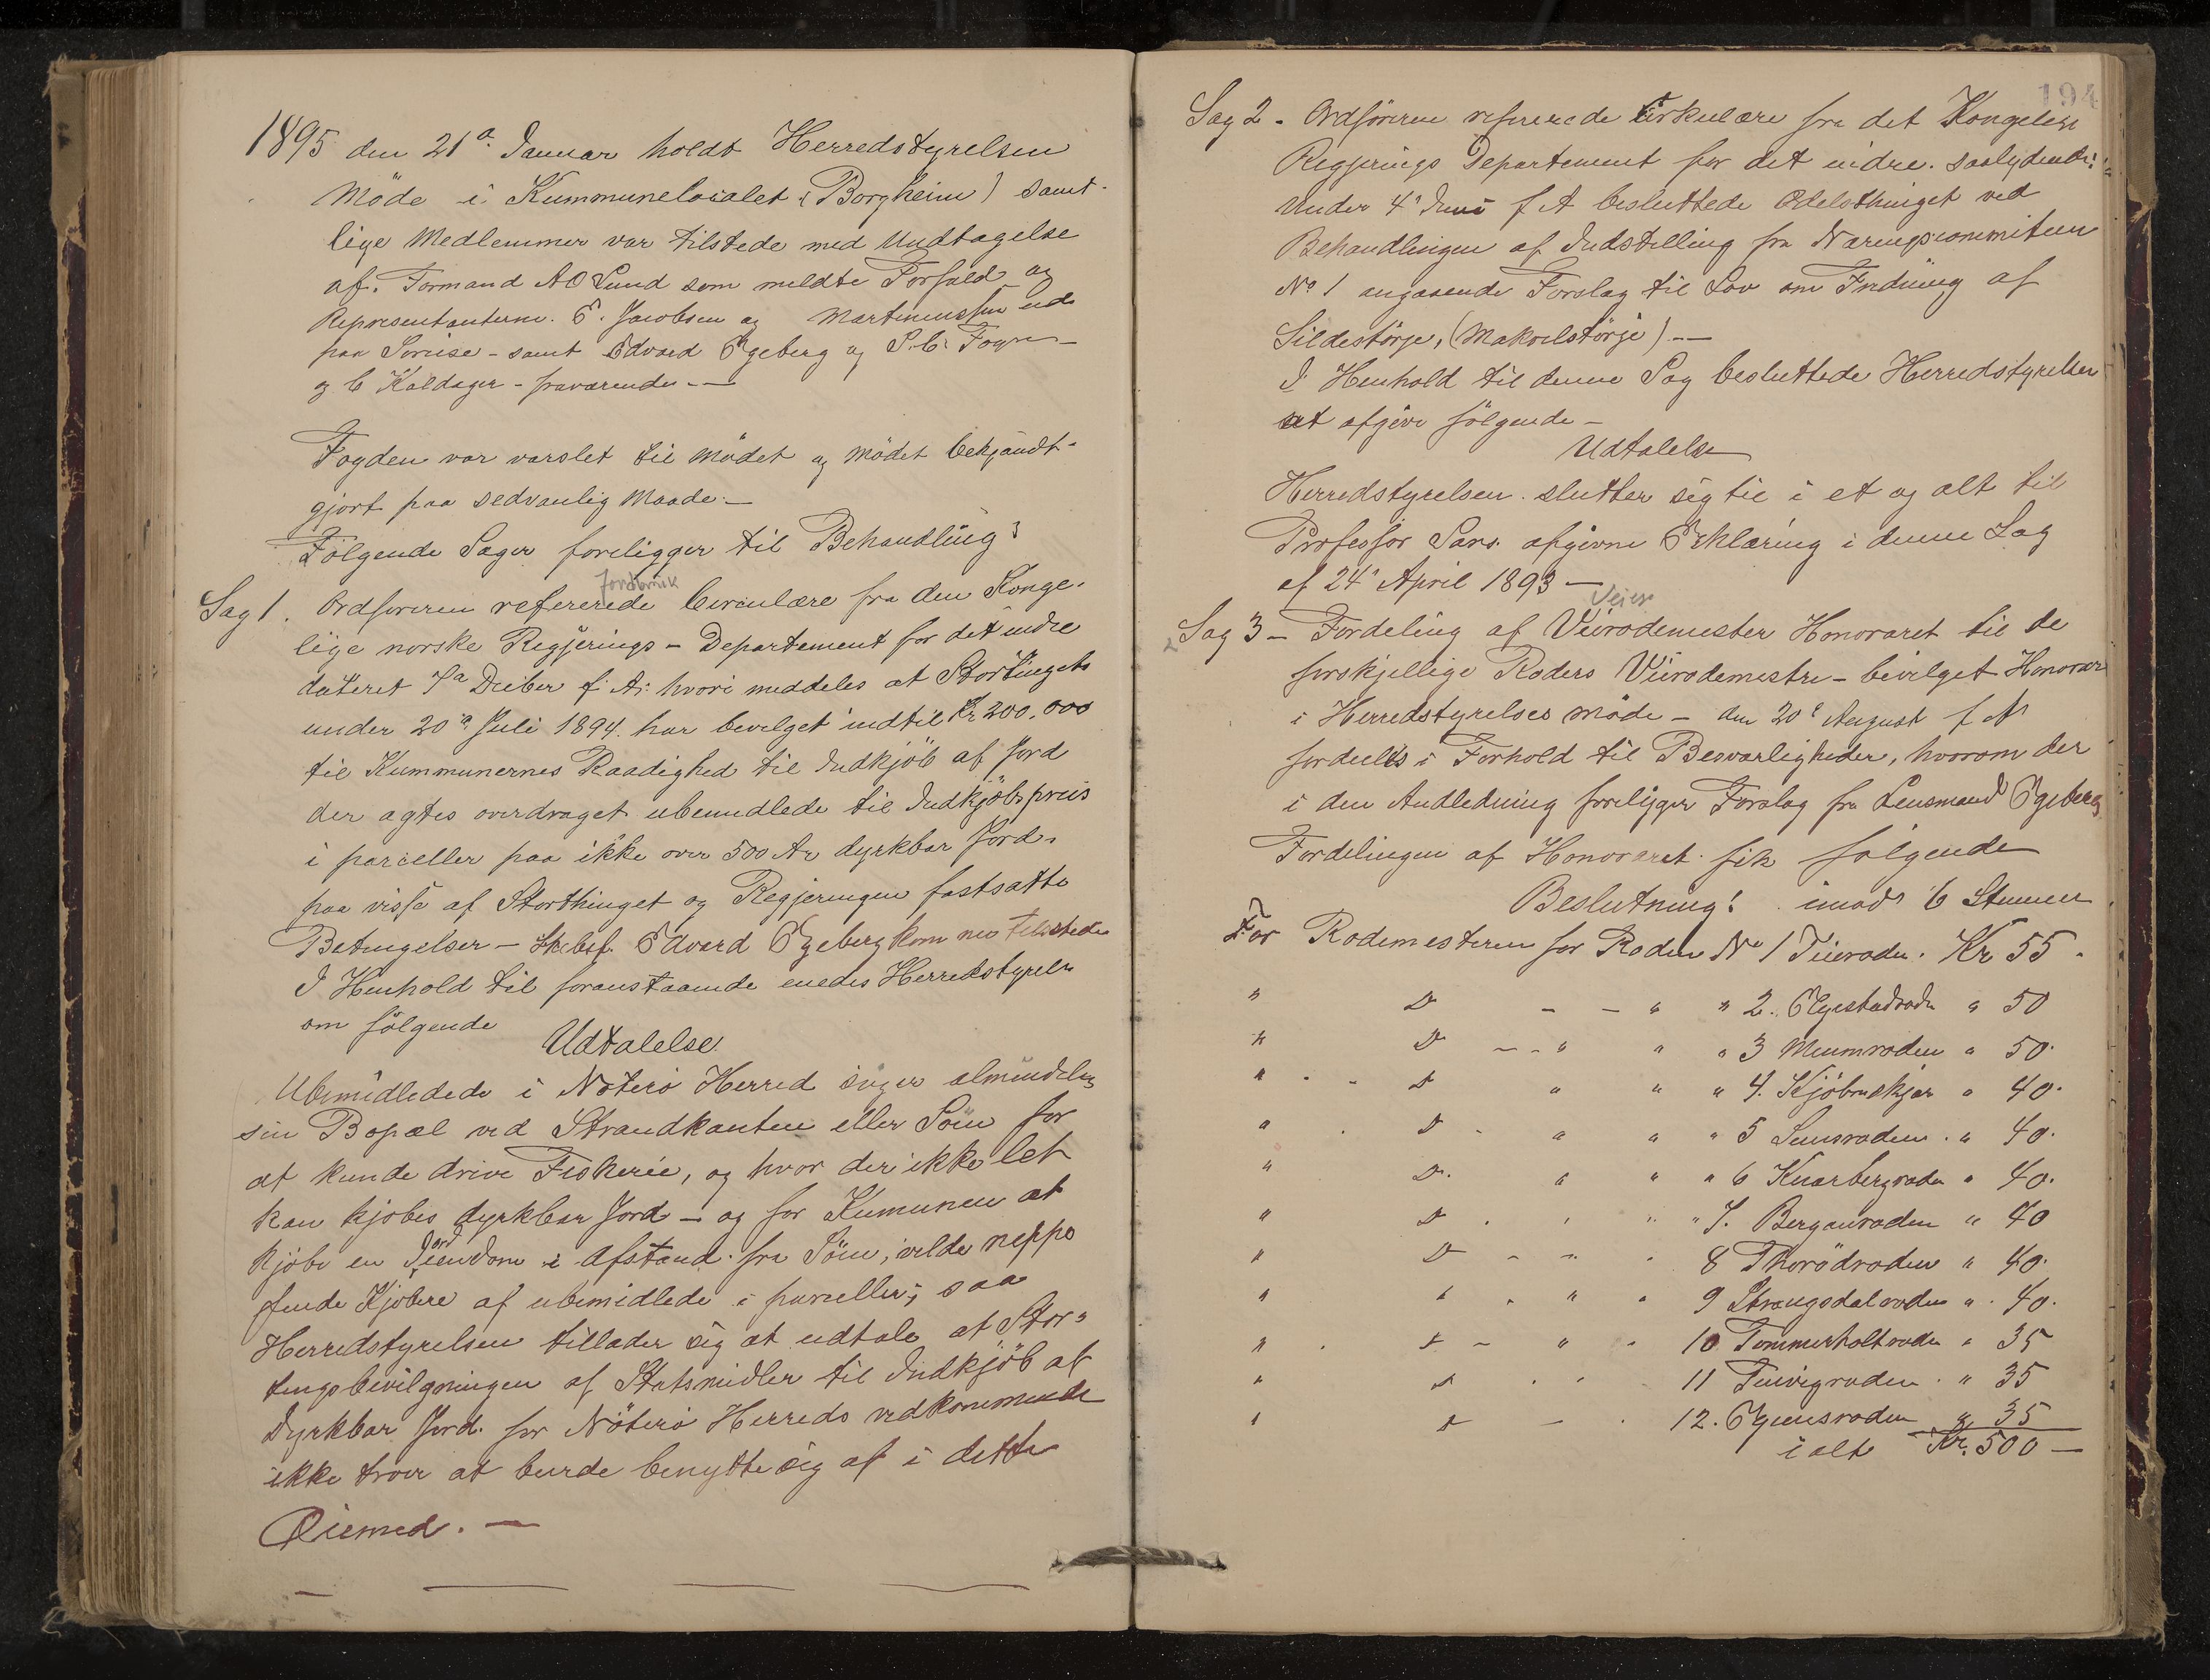 1895 den 21a Januar holdt Herredstyrelsen
Möde i Kummunelocalet (Borgheim) samt-
lige Medlemmer var tilstede med Undtagelse
af. Formand A O Lund som meldte Forfald og
Representanterne. E. Jacobsen og Martinussen ude
paa Soreise - samt Edvard Egeberg og S. C. Foyn -
og C Kaldager - fraværende. -
Fogden var varslet til mödet og Mödet bekjandt-
gjort paa sedvanlig Maade. -
Fölgende Sager foreligger til Behandling:
Jordbruk
Sag 1. Ordföreren refererede Circulære fra den Konge-
lige norske Regjerings - Departement for det indre
dateret 7a Dcbr f. A. hvori meddeles at Stortinget
under 20a Juli 1894. har bevilget indtil Kr 200,000
til Kummunernes Raadighed til Indkjöb af Jord
der agtes overdraget ubemidlede til Indkjöbspris
i parceller paa ikke over 500 Ar dyrkbar Jord.
paa visse af Storthinget og Regjeringen fastsatte
Betingelser - Skbsf. Edvard Egeberg kom nu tilstede
I Henhold til foranstaaende enedes Herredstyrelsen
om fölgende
Udtalelse.
Ubemidledede i Nöterö Herred söger almindelig
sin Bopæl ved Strandkanten eller Söen for
at kunde drive Fiskerie, og hvor der ikke let
kan kjöbes dyrkbar Jord - og for Kumunen at
kjöbe en Jordeiendom i Afstand fra Söen, vilde neppe
finde Kjöbere af ubemidlede i parceller; saa
Herredstyrelsen tillader sig at udtale at Stor-
tingsbevilgningen af Statsmidler til Indkjöb af
Dyrkbar Jord. for Nöterö Herreds vedkommende
ikke troer at burde benytte sig af i dette
Öiemed. -
194
Sag 2 - Ordföreren refererede Cirkulære fra det Kongelige
Regjerings Departement for det indre. saalydende:
Under 4' Juni f A besluttede Odelsthinget ved
Behandlingen af Indstilling fra Næringscommiteen
No 1 angaaende Forslag til Lov om Fredning af
Sildestörje, (Makrelstörje) -
I Henhold til denne Sag besluttede Herredstyrelsen
at afgive fölgende -
Udtalelse
Herredstyrelsen. slutter sig til i et og alt til
Professor Sars. afgivne Erklæring i denne Sag
af 24' April 1893 -
Veiese
Sag 3 - Fordeling af Veirodemester Honoraret til de
forskjellige Roders Veirodemestre - bevilget Honorar
i Herredstyrelses möde - den 20' August f A
fordeeles i Forhold til Besværligheder, hvorom der
i den Andledning foreligger Forslag fra Lensmand Egeberg
Fordelingen af Honoraret fik fölgende
Beslutning: imod 6 Stemmer
For Rodemesteren for Roden No 1 Teieroden. Kr 55.
" D - - " " 2. Ekgestadroden " 50
" D - - " " " 3 Meumroden " 50.
" - - D " " " 4. Kjöbmskjær " 40.
" . D - " " " 5 Lensroden. " 40.
" D. " " " 6 Knarbergroden " 40.
" D . " " " 7. Berganroden " 40
" D - - " 8 Thorödroden " 40.
" " . " " 9 Strengsdalroden " . 40.
" . D - " " 10 Tommerholtroden " 35
" D . . 11 Tenvigroden. " 35
" D - . 12. Ekgeensroden " 35
i alt Kr. 500 -